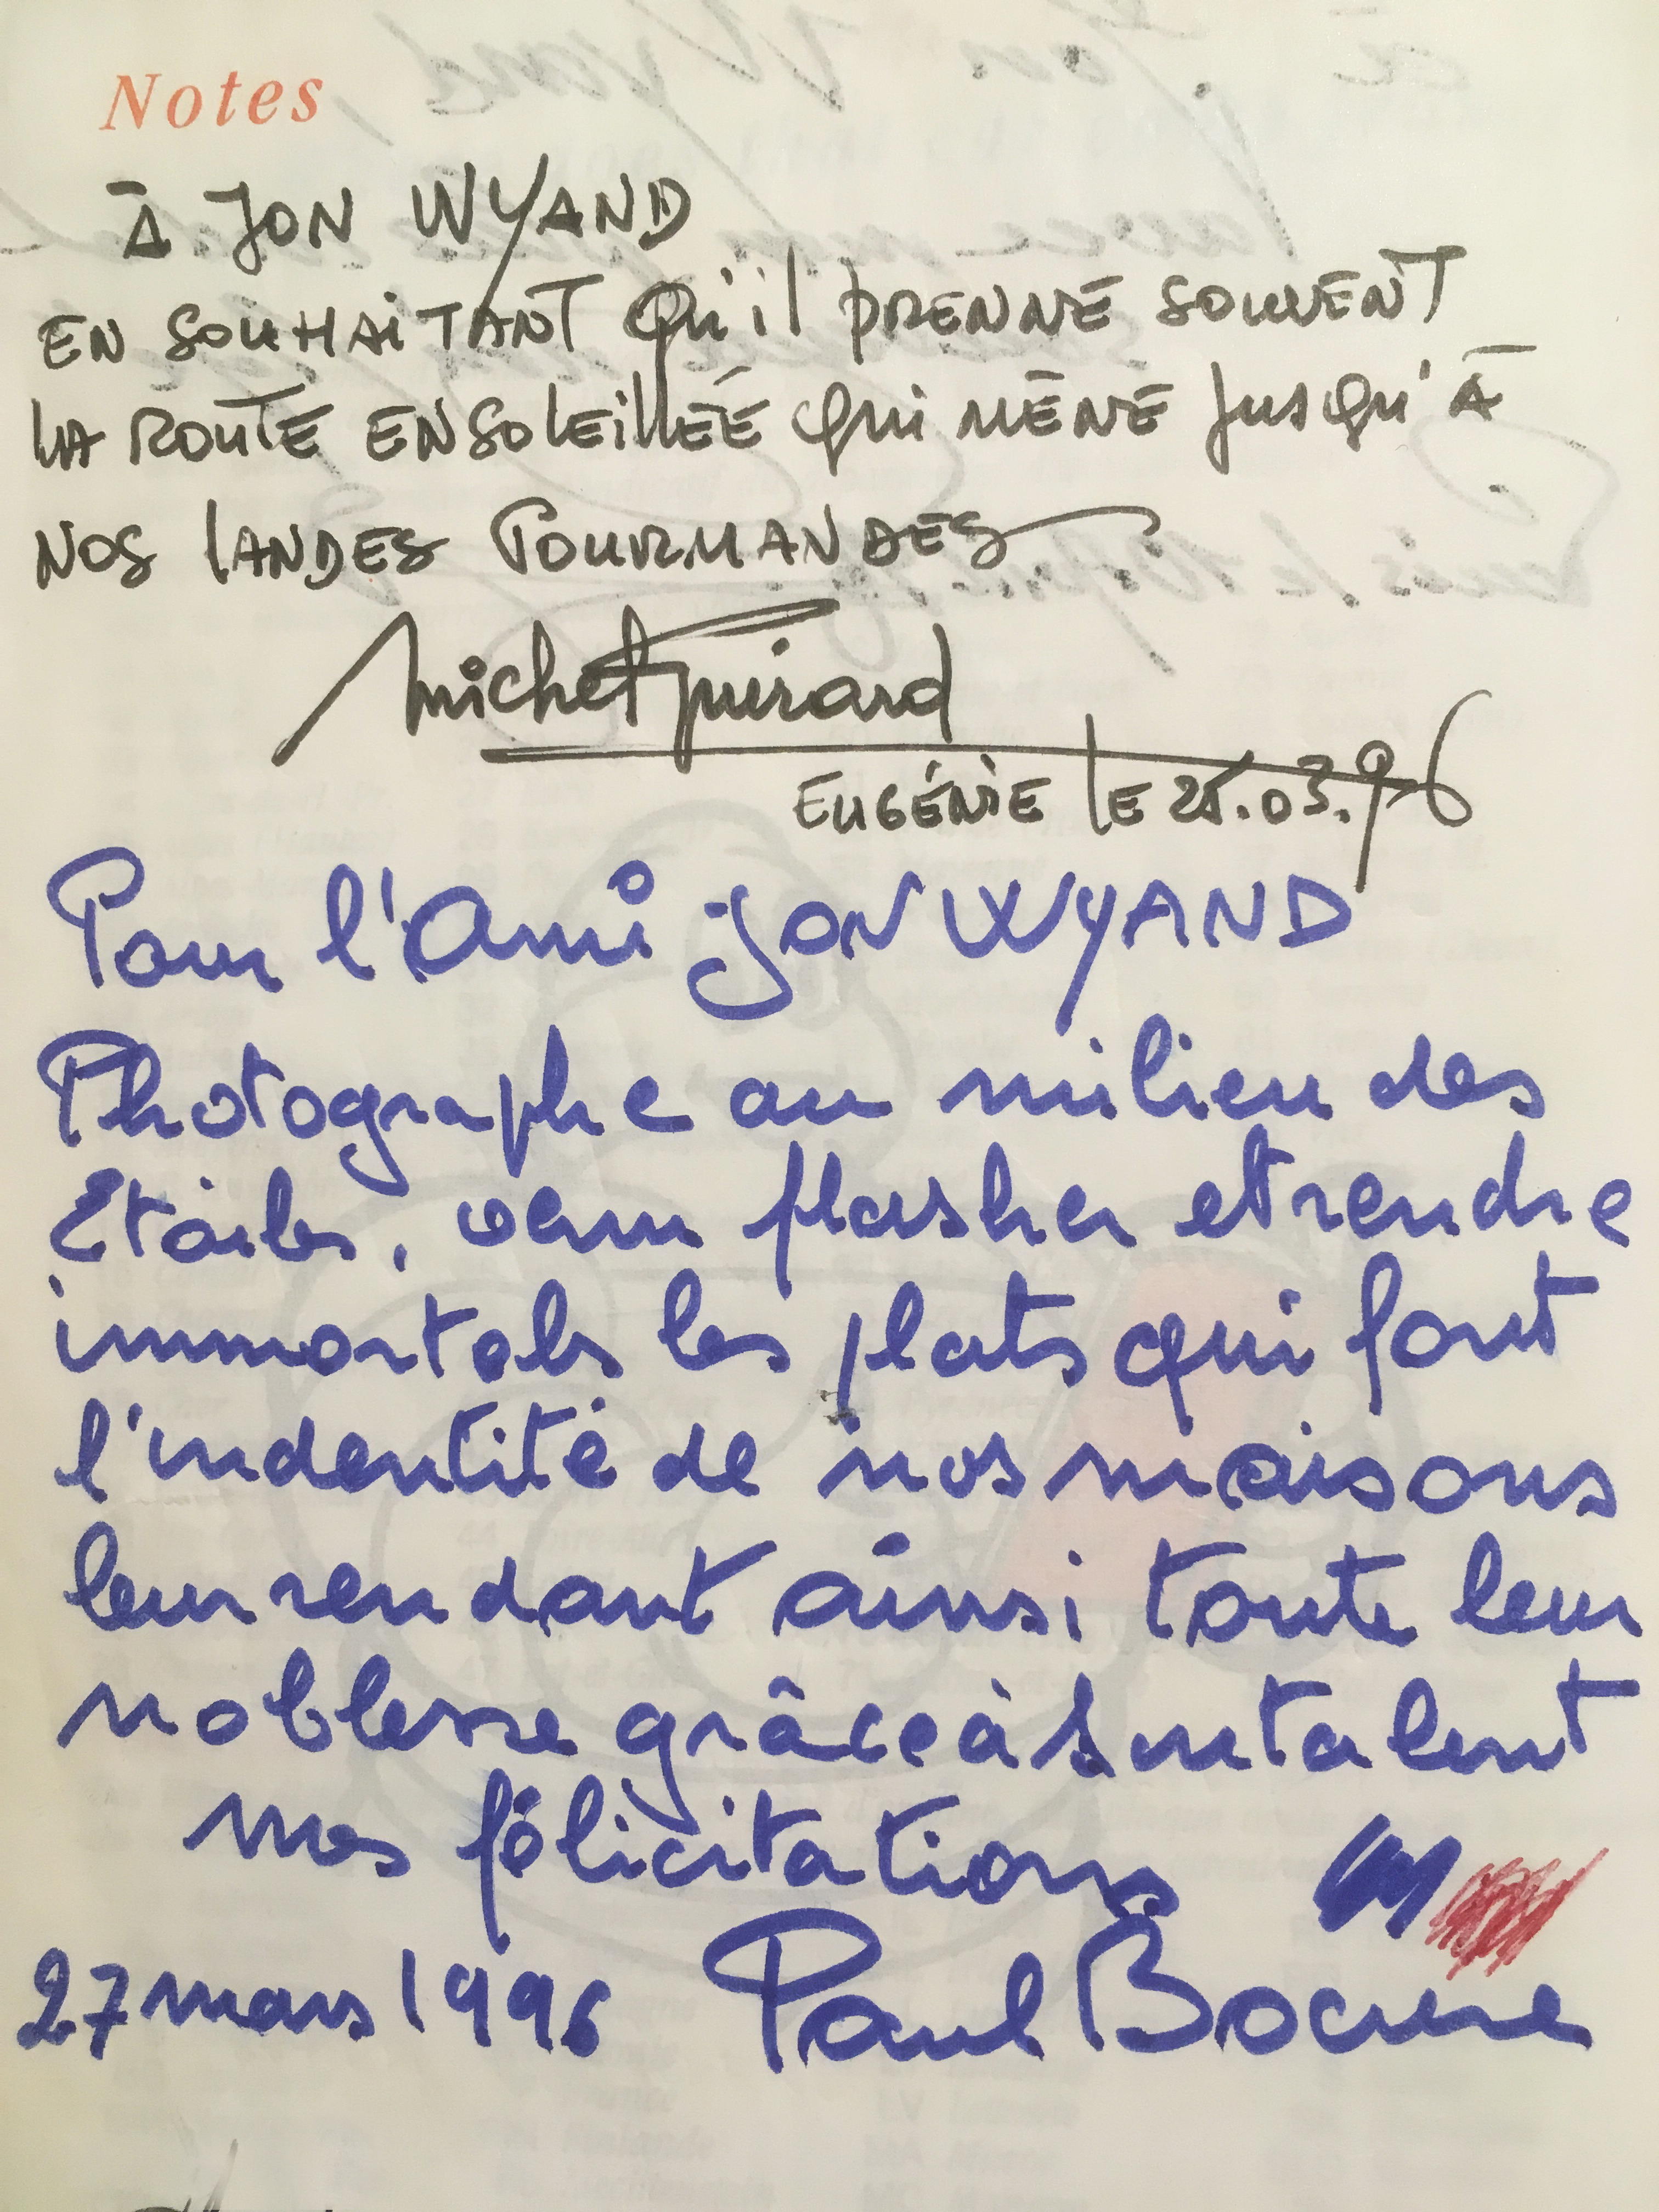 Notes
À JON WYAND
EN SOUHAITANT Qu'il PRENNE SOUVENT
LA ROUTE ENSOLEILLÉE QUI MÈNE JUSQU'À
NOS LANDES GOURMANDES
Michel Guérard
EUGÉNIE LE 25.03.96
Pour l'Ami JON WYAND
Photographe au milieu des
Etoiles, venu flasher et rendre
immortels les plats qui font
l'indentité de nos maisons
leur rendant ainsi toute leur
noblesse grâce à son talent
mes félicitations
27 mars 1996 Paul Bocuse